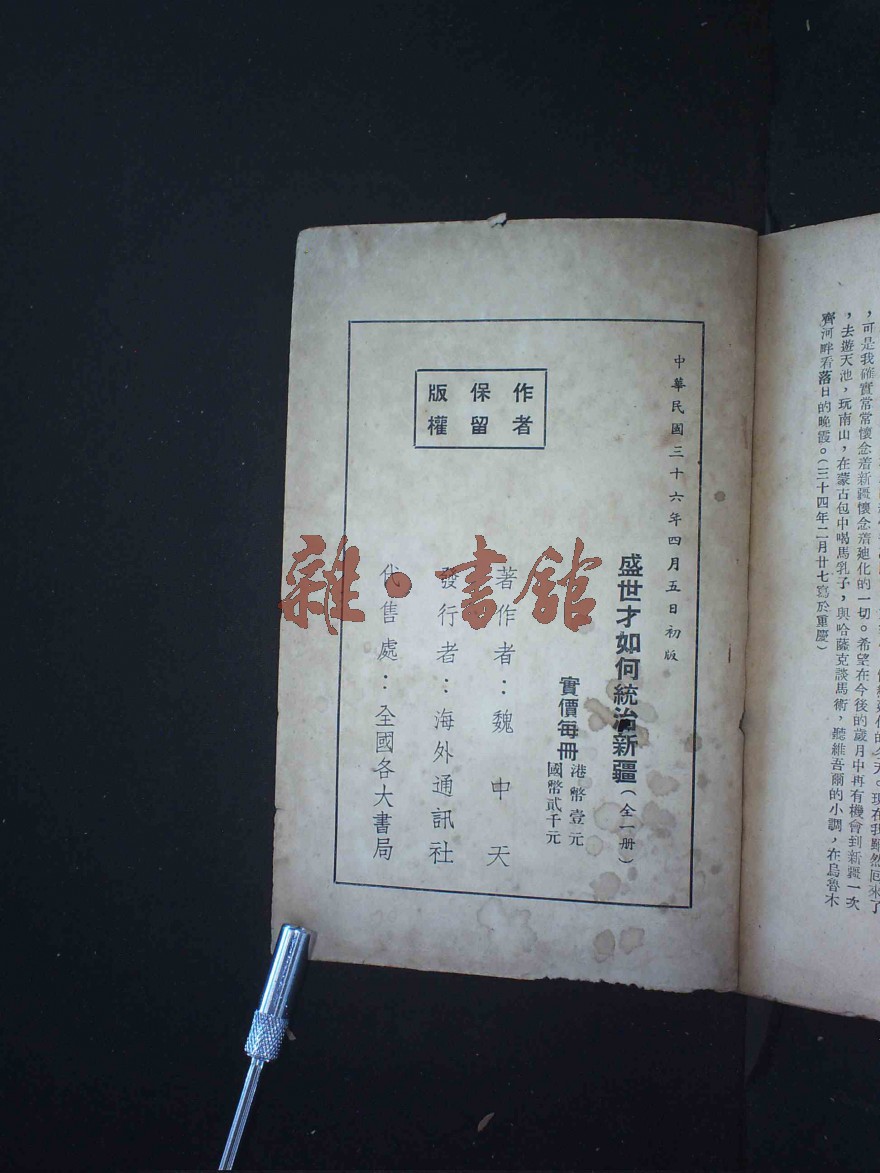 ，可是我確實常常懷念着新疆懷念着廸化的一切。希望在今後的歲月中再有機會到新疆一次
，去遊天池，玩南山，在蒙古包中喝馬乳子，與哈薩克談馬術，聽維吾爾的小調，在烏魯木
齊河畔看落日的晚霞。（三十四年二月廿七寫於重慶）
中華民國三十六年四月五日初版
盛世才如何統治新疆（全一册）
實價每冊
港幣壹元
國幣貳千元
著作者：魏中天
發行者：海外通訊社
代售處：全國各大書局
作者
保留
版權
雜·書館